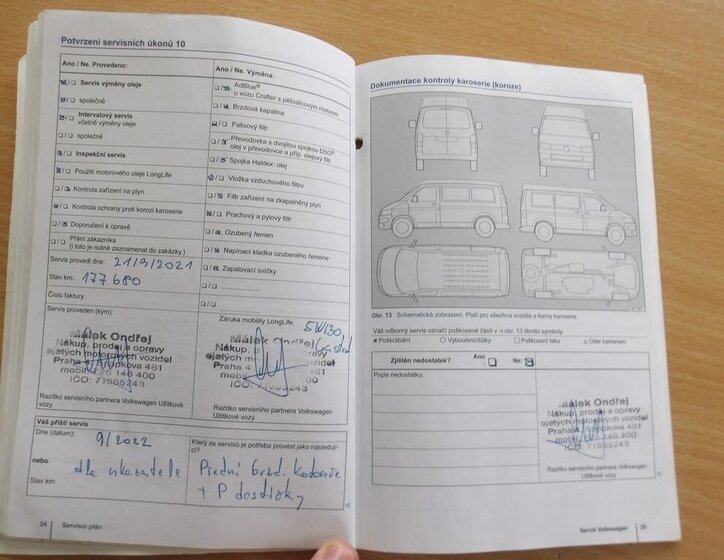 Potvrzení servisních úkonů 10
Ano / Ne. Provedeno:
Servis výměny oleje
společně
Intervalový servis
včetně výměny oleje
společně
Inspekční servis
Použití motorového oleje LongLife
Kontrola zařízení na plyn
Kontrola ochrany proti korozi karoserie
Doporučení k opravě
Přání zákazníka
(i toto je nutné zaznamenat do zakázky.)
Ano / Ne. Výměna:
AdBlue®
u vozu Crafter s pětiválcovým motorem
Brzdová kapalina
Palivový filtr
Převodovka s dvojitou spojkou DSG®
olej v převodovce a příp. olejový filtr
Spojka Haldex: olej
Vložka vzduchového filtru
Filtr zařízení na zkapalněný plyn
Prachový a pylový filtr
Ozubený řemen
Napínací kladka ozubeného řemene
Zapalovací svíčky
Servis provedl dne: 21/9/2021
Stav km: 177 680
Číslo faktury:
Servis proveden (kým):
Málek Ondřej
Nákup, prodej a opravy
ojetých motorových vozidel
Praha 4, 481
mobil 728 146 400
IČO: 71685243
Razítko servisního partnera Volkswagen Užitkové
vozy
Záruka mobility LongLife:
5W30
Málek Ondřej
Nákup, prodej a opravy
ojetých motorových vozidel
Praha 4, 481
mobil
IČO: 71685243
Razítko servisního partnera Volkswagen Užitkové
vozy
Váš příští servis
Dne (datum): 9/2022
nebo
dle ukazatele
Stav km:
Který ze servisů je potřeba provést jako následují-
cí?
Přední brzd. kotouče
+ P destičky
24 Servisní plán
Dokumentace kontroly karoserie (koroze)
Obr. 13 Schematické zobrazení. Platí pro všechna vozidla a formy karoserie.
Váš odborný servis označí poškozené části v ⇒ obr. 13 těmito symboly.
Poškrábání
Vyboulení/důlky
Poškození laku
Úder kamenem
Zjištěn nedostatek?
Ano
Ne:
Popis nedostatku:
Málek Ondřej
Nákup, prodej a opravy
ojetých motorových vozidel
Praha 4, 481
mobil
IČO: 71685243
Razítko servisního partnera Volkswagen
Užitkové vozy
Servis Volkswagen 25